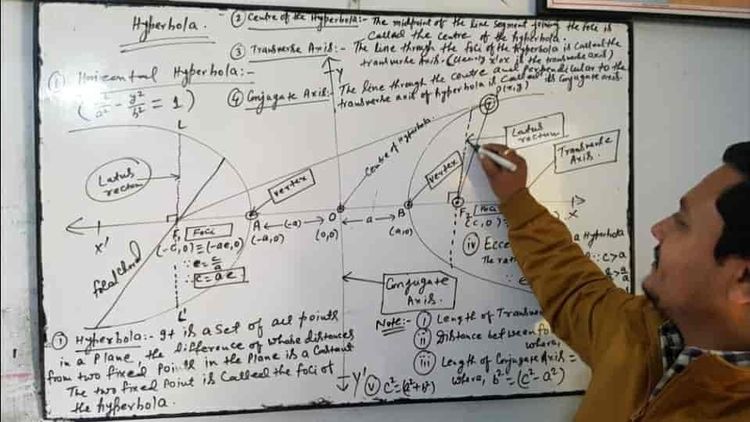 Hyperbola.
② Centre of the Hyperbola:- The midpoint of the line segment joining the foci is
called the centre of the hyperbola.
③ Transverse Axis:- The line through the foci of the hyperbola is called the
transverse axis. (Clearly x'ox is the transverse axis)
① Horizontal Hyperbola:-
④ Conjugate Axis:- The line through the centre and perpendicular to the
transverse axis of hyperbola is called its conjugate axis.
(x²/a² - y²/b² = 1)
Y
P(x,y)
L
Centre of Hyperbola.
Latus rectum
Transverse Axis.
Latus rectum
vertex
vertex
X'
F₁
Foci
A
(-a)
O
a
B
F₂
Foci
X
(-c,0)=(-ae,0)
(-a,0)
(0,0)
(a,0)
(c,0)
∵ e = c/a
∴ c = ae
focal chord
iv Ecce
The rat
a Hyperbola
∵ c>a
Conjugate Axis.
L'
① Hyperbola:- It is a set of all points
in a Plane, the difference of whose distances
from two fixed points in the Plane is a constant
The two fixed point is called the foci of
the hyperbola.
Note:- ① Length of Transve
ii Distance between fo
where,
iii Length of Conjugate Axis =
where, b² = (c² - a²)
Y'
v c² = (a² + b²)